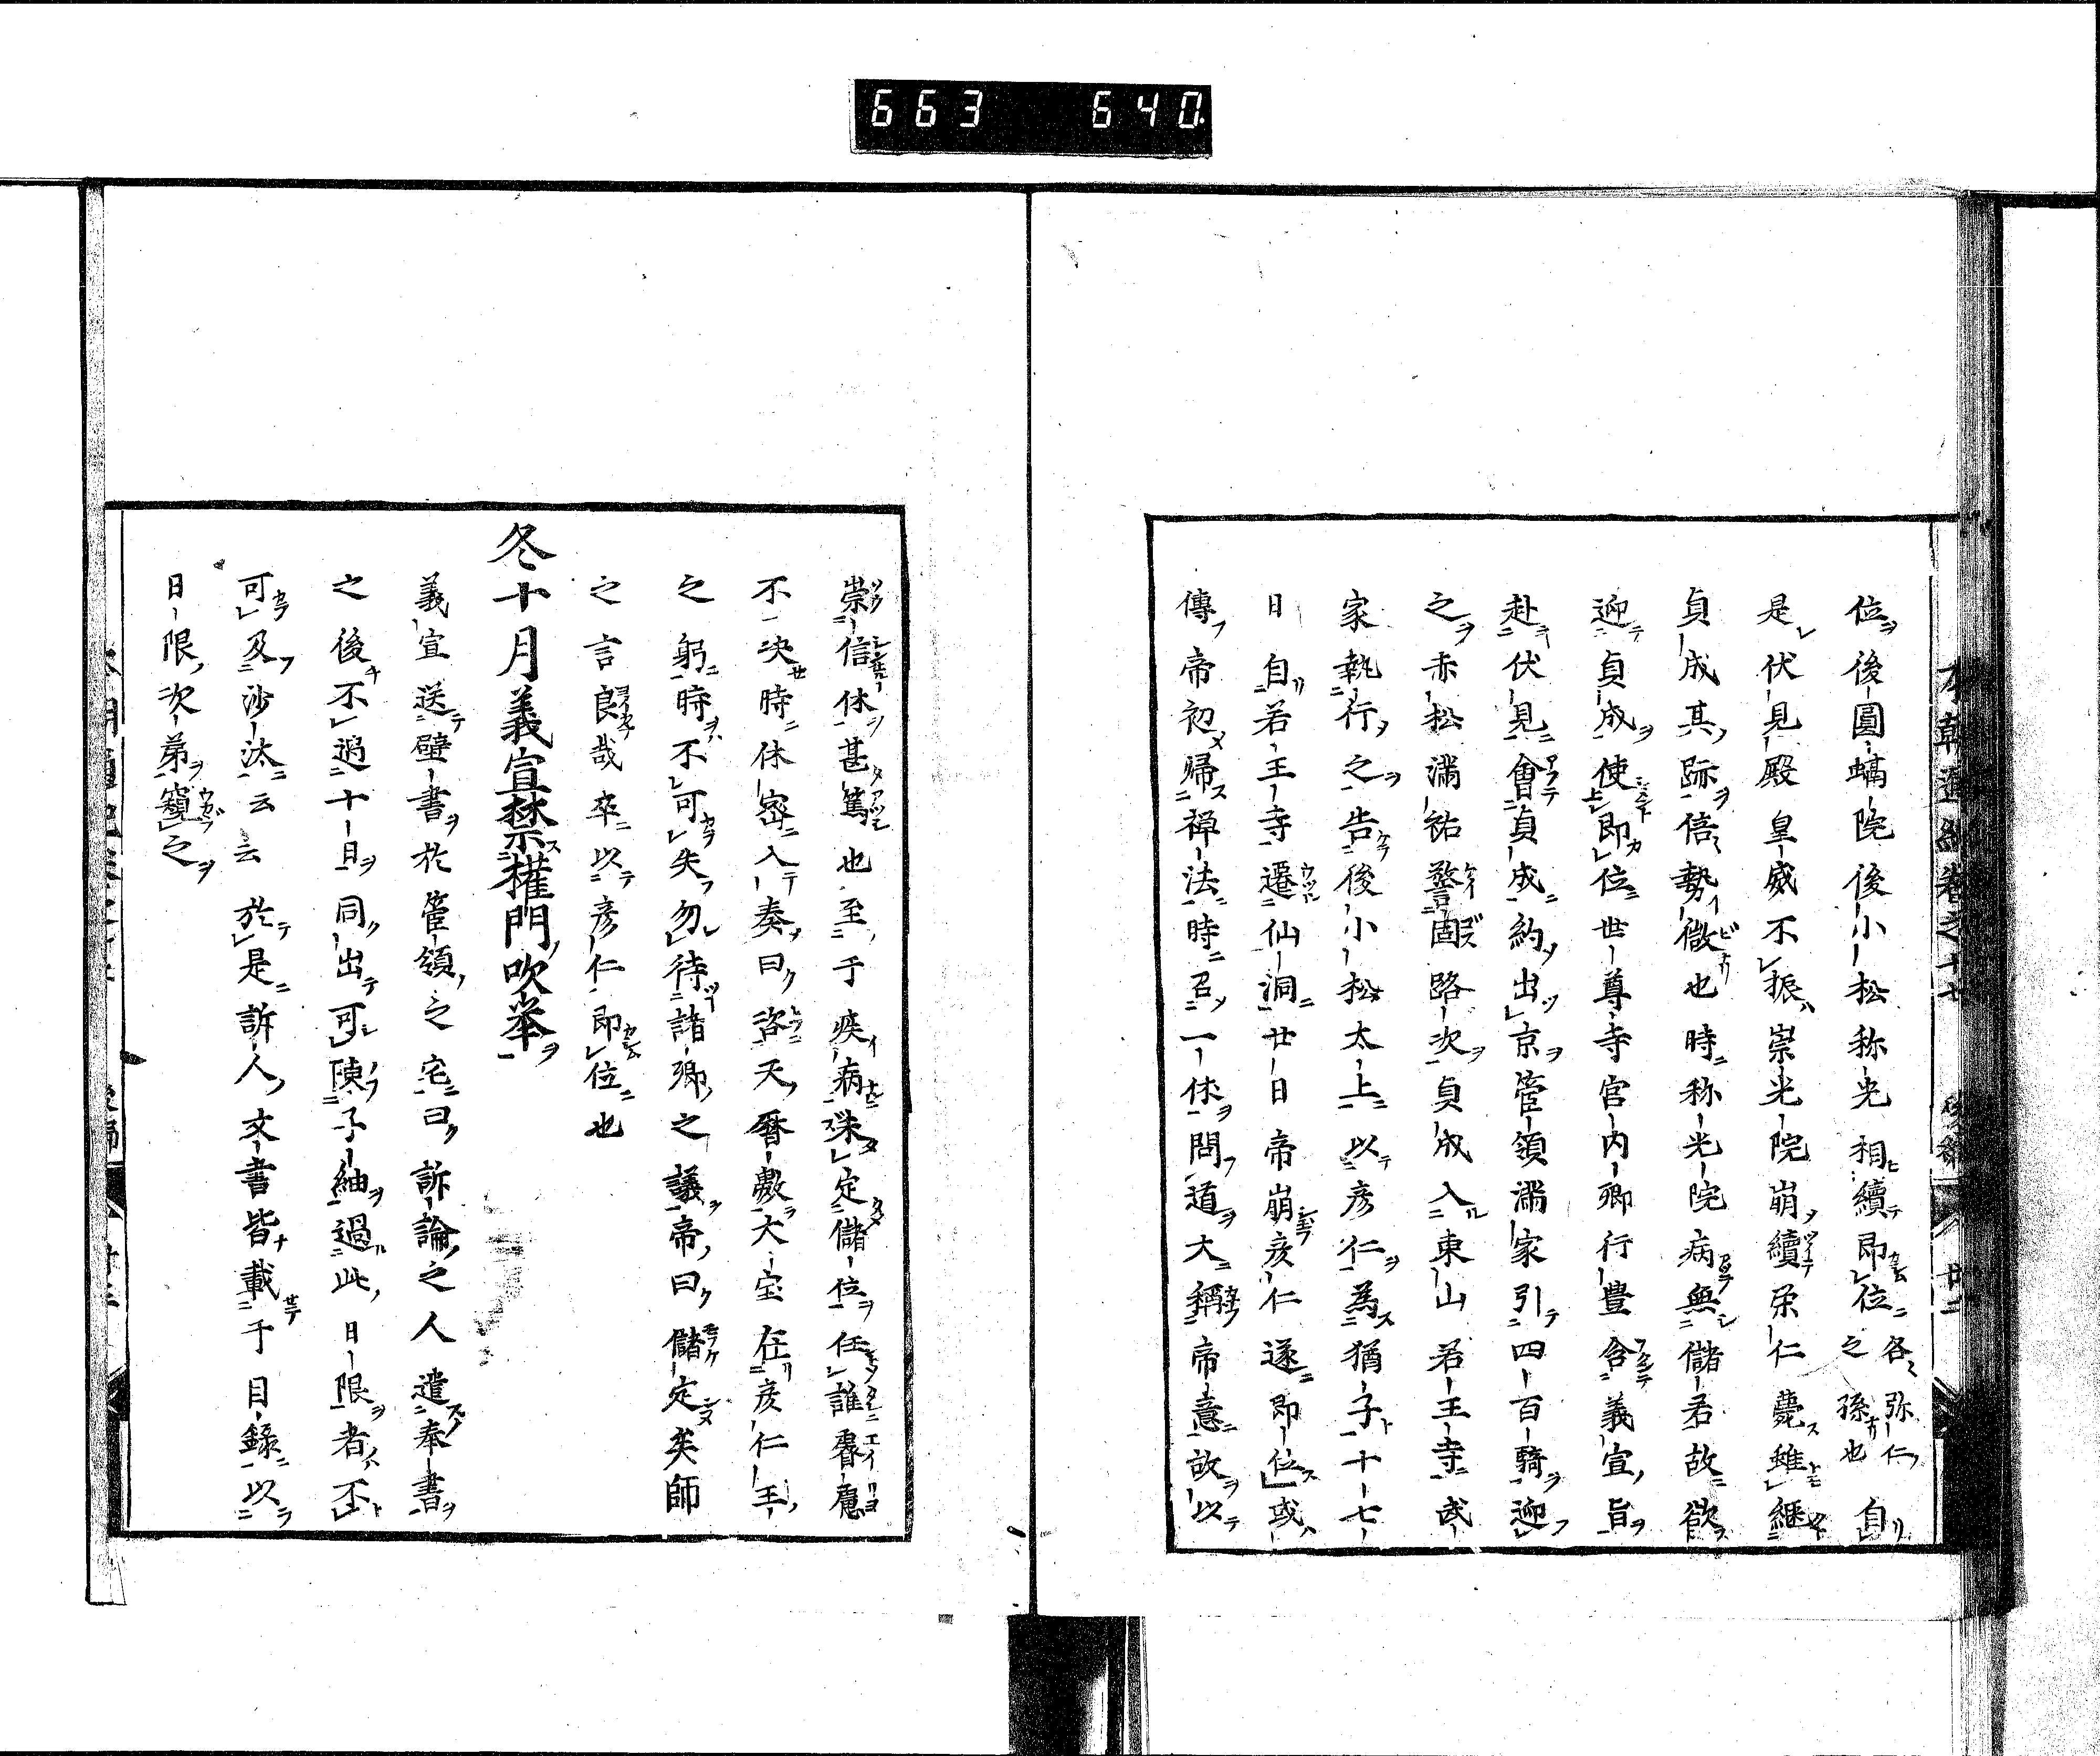 663 640
位後圓螎院後小松称光相續即位各弥仁之孫也自
是伏見殿皇威不振崇光院崩續栄仁薨雖継
貞成其跡倍勢微也時称光院病無儲君故欲
迎貞成使即位世尊寺宮内卿行豊含義宣旨
赴伏見會貞成約出京管領満家引四百騎迎
之赤松満祐警固路次貞成入東山若王寺武
家執行之告後小松太上以彦仁為猶子十七
日自若王寺遷仙洞廿日帝崩彦仁遂即位或
傳帝初帰禅法時召一休問道大稱帝意故以
崇信休甚篤也至于疾病殊定儲位任誰睿慮
不决時休密入奏曰咨天暦數大宝在彦仁王
之躬時不可失勿待諸卿之議帝曰儲定矣師
之言良哉卒以彦仁即位也
冬十月義宣禁權門吹挙
義宣送壁書於管領之宅曰訴論之人遣奉書
之後不過十日同出可陳子紬過此日限者不
可及沙汰云云於是訴人文書皆載于目錄以
日限次第窺之